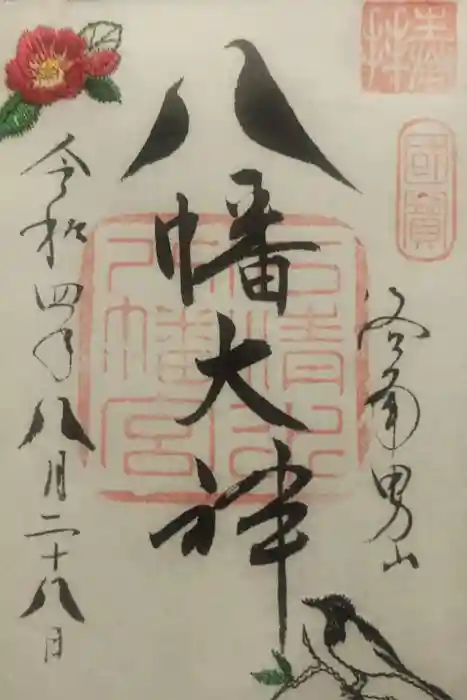 奉拝
國寶
洛南男山
八幡大神
石清水八幡宮
令和四年八月二十八日